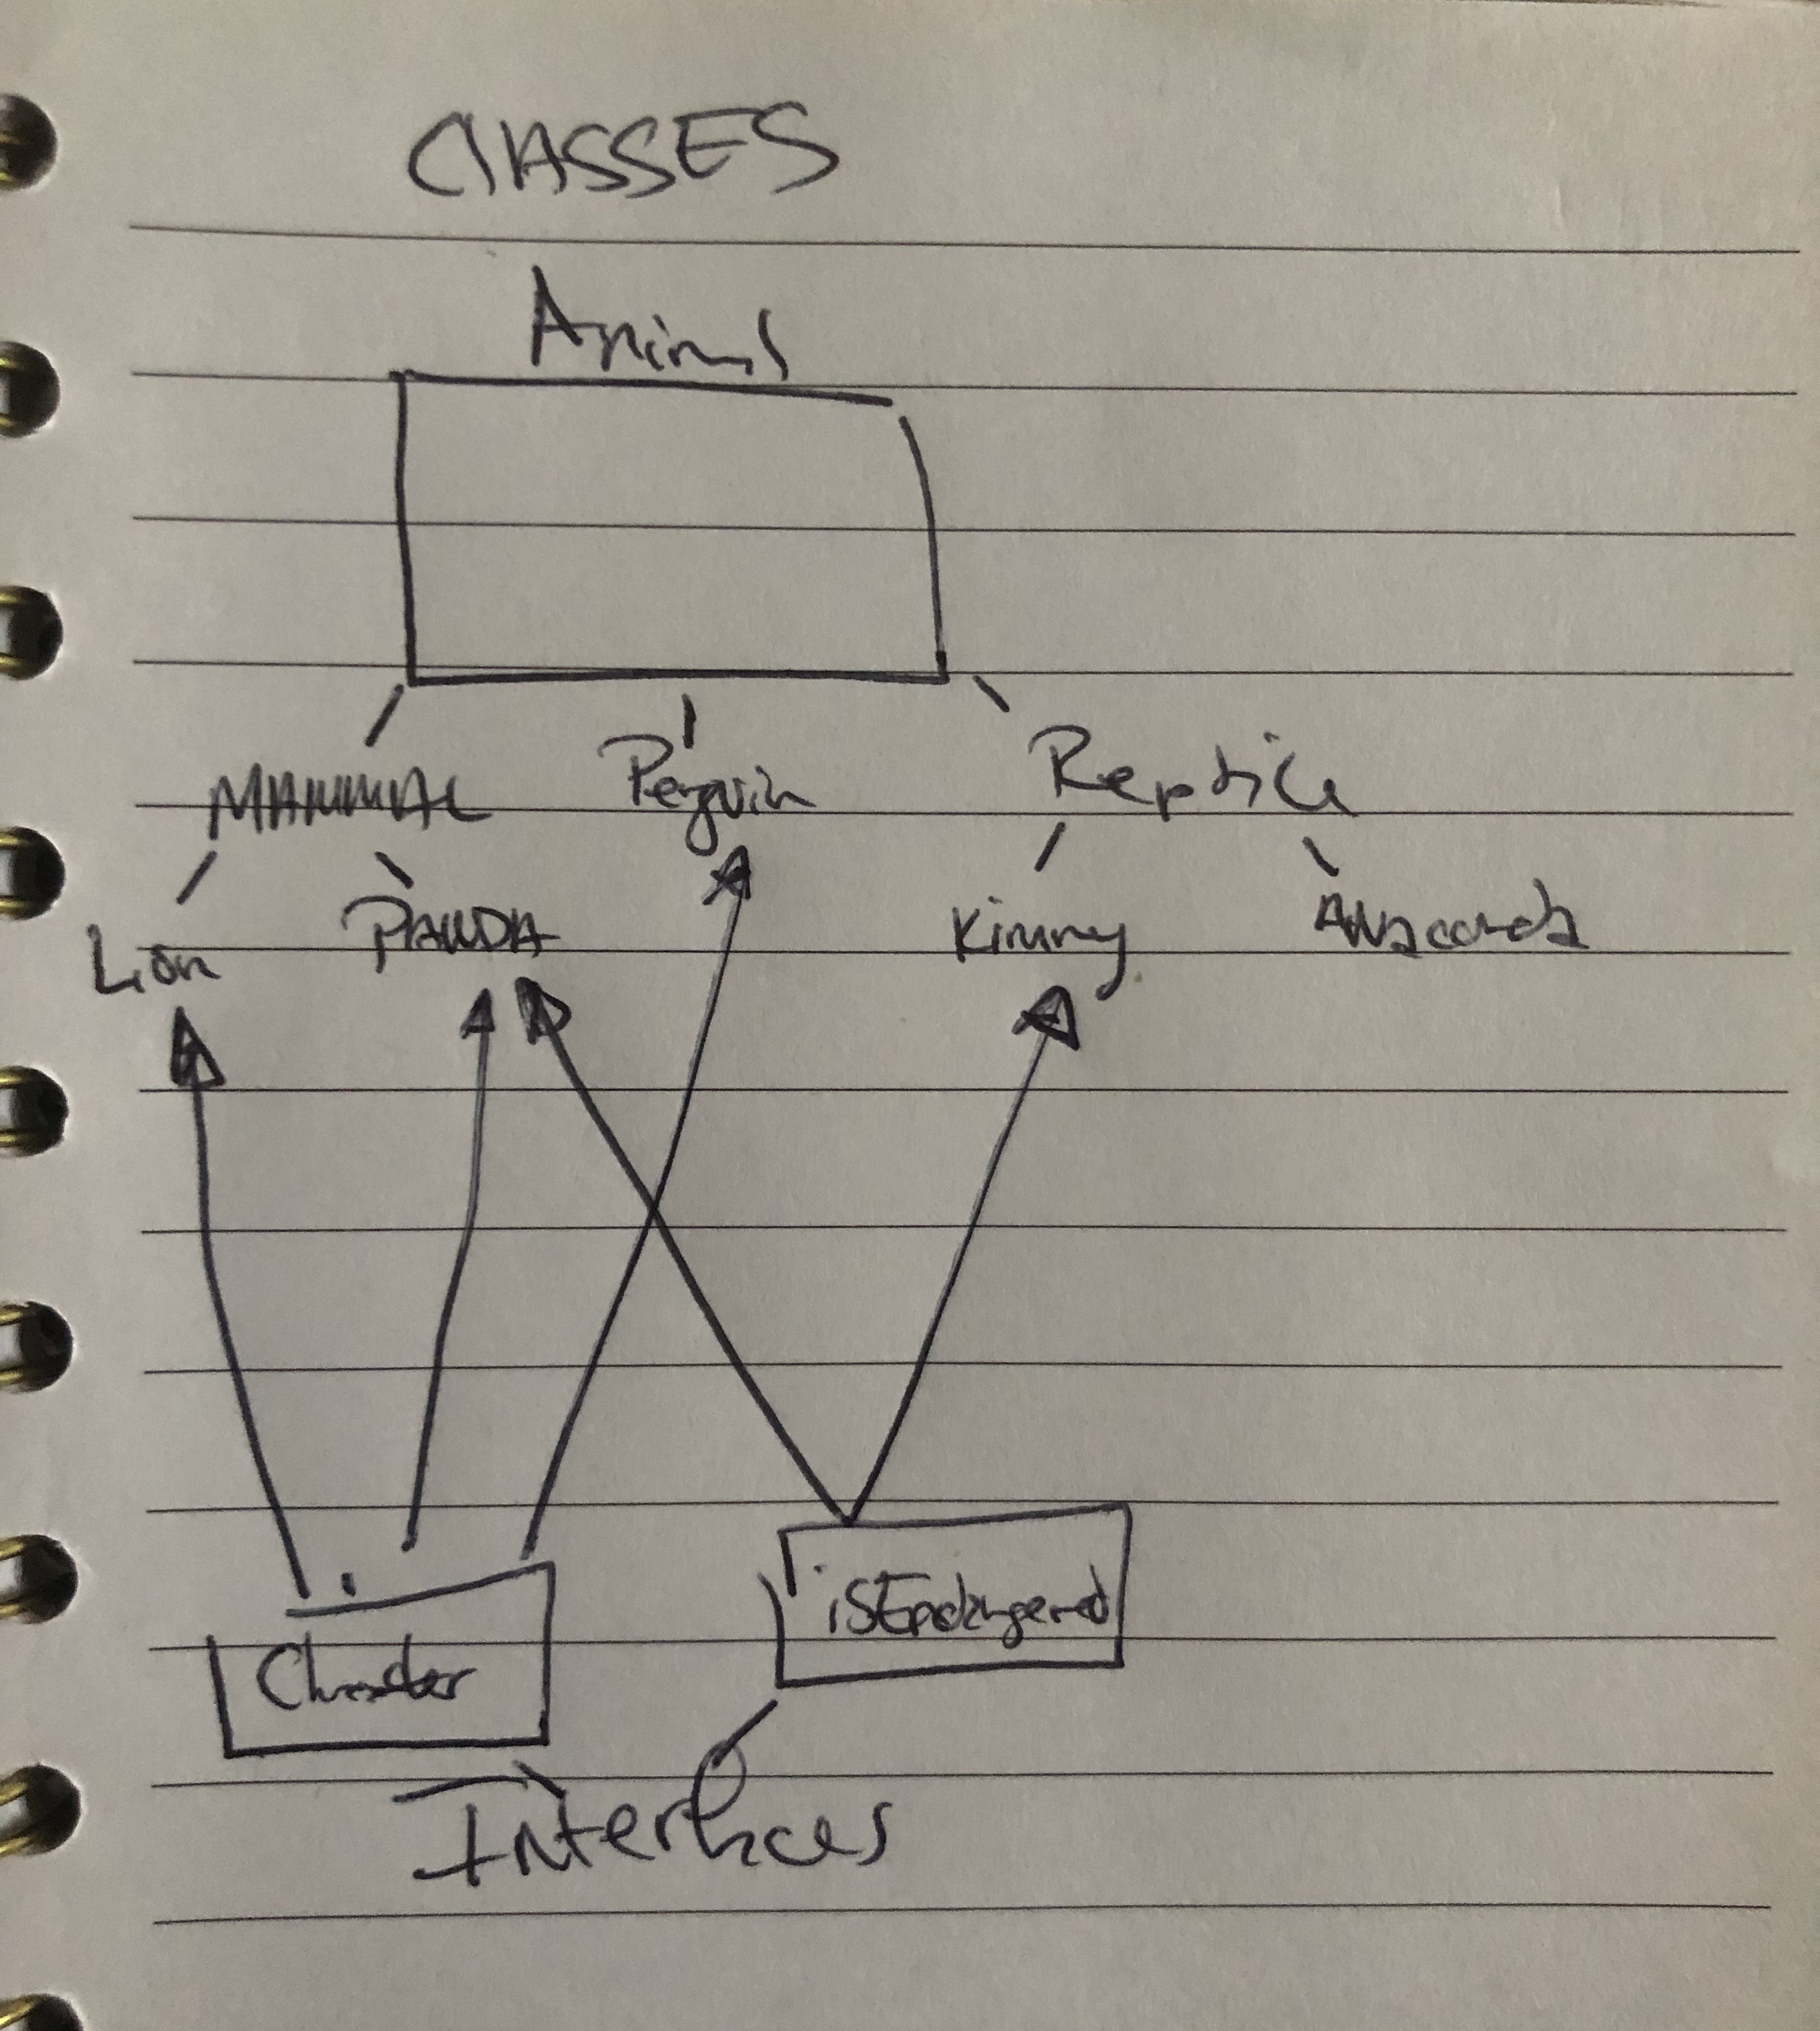 CLASSES
Animal
MAMMAL Penguin Reptile
Lion PANDA Kimmy Anaconda
isEndangered
Interfaces